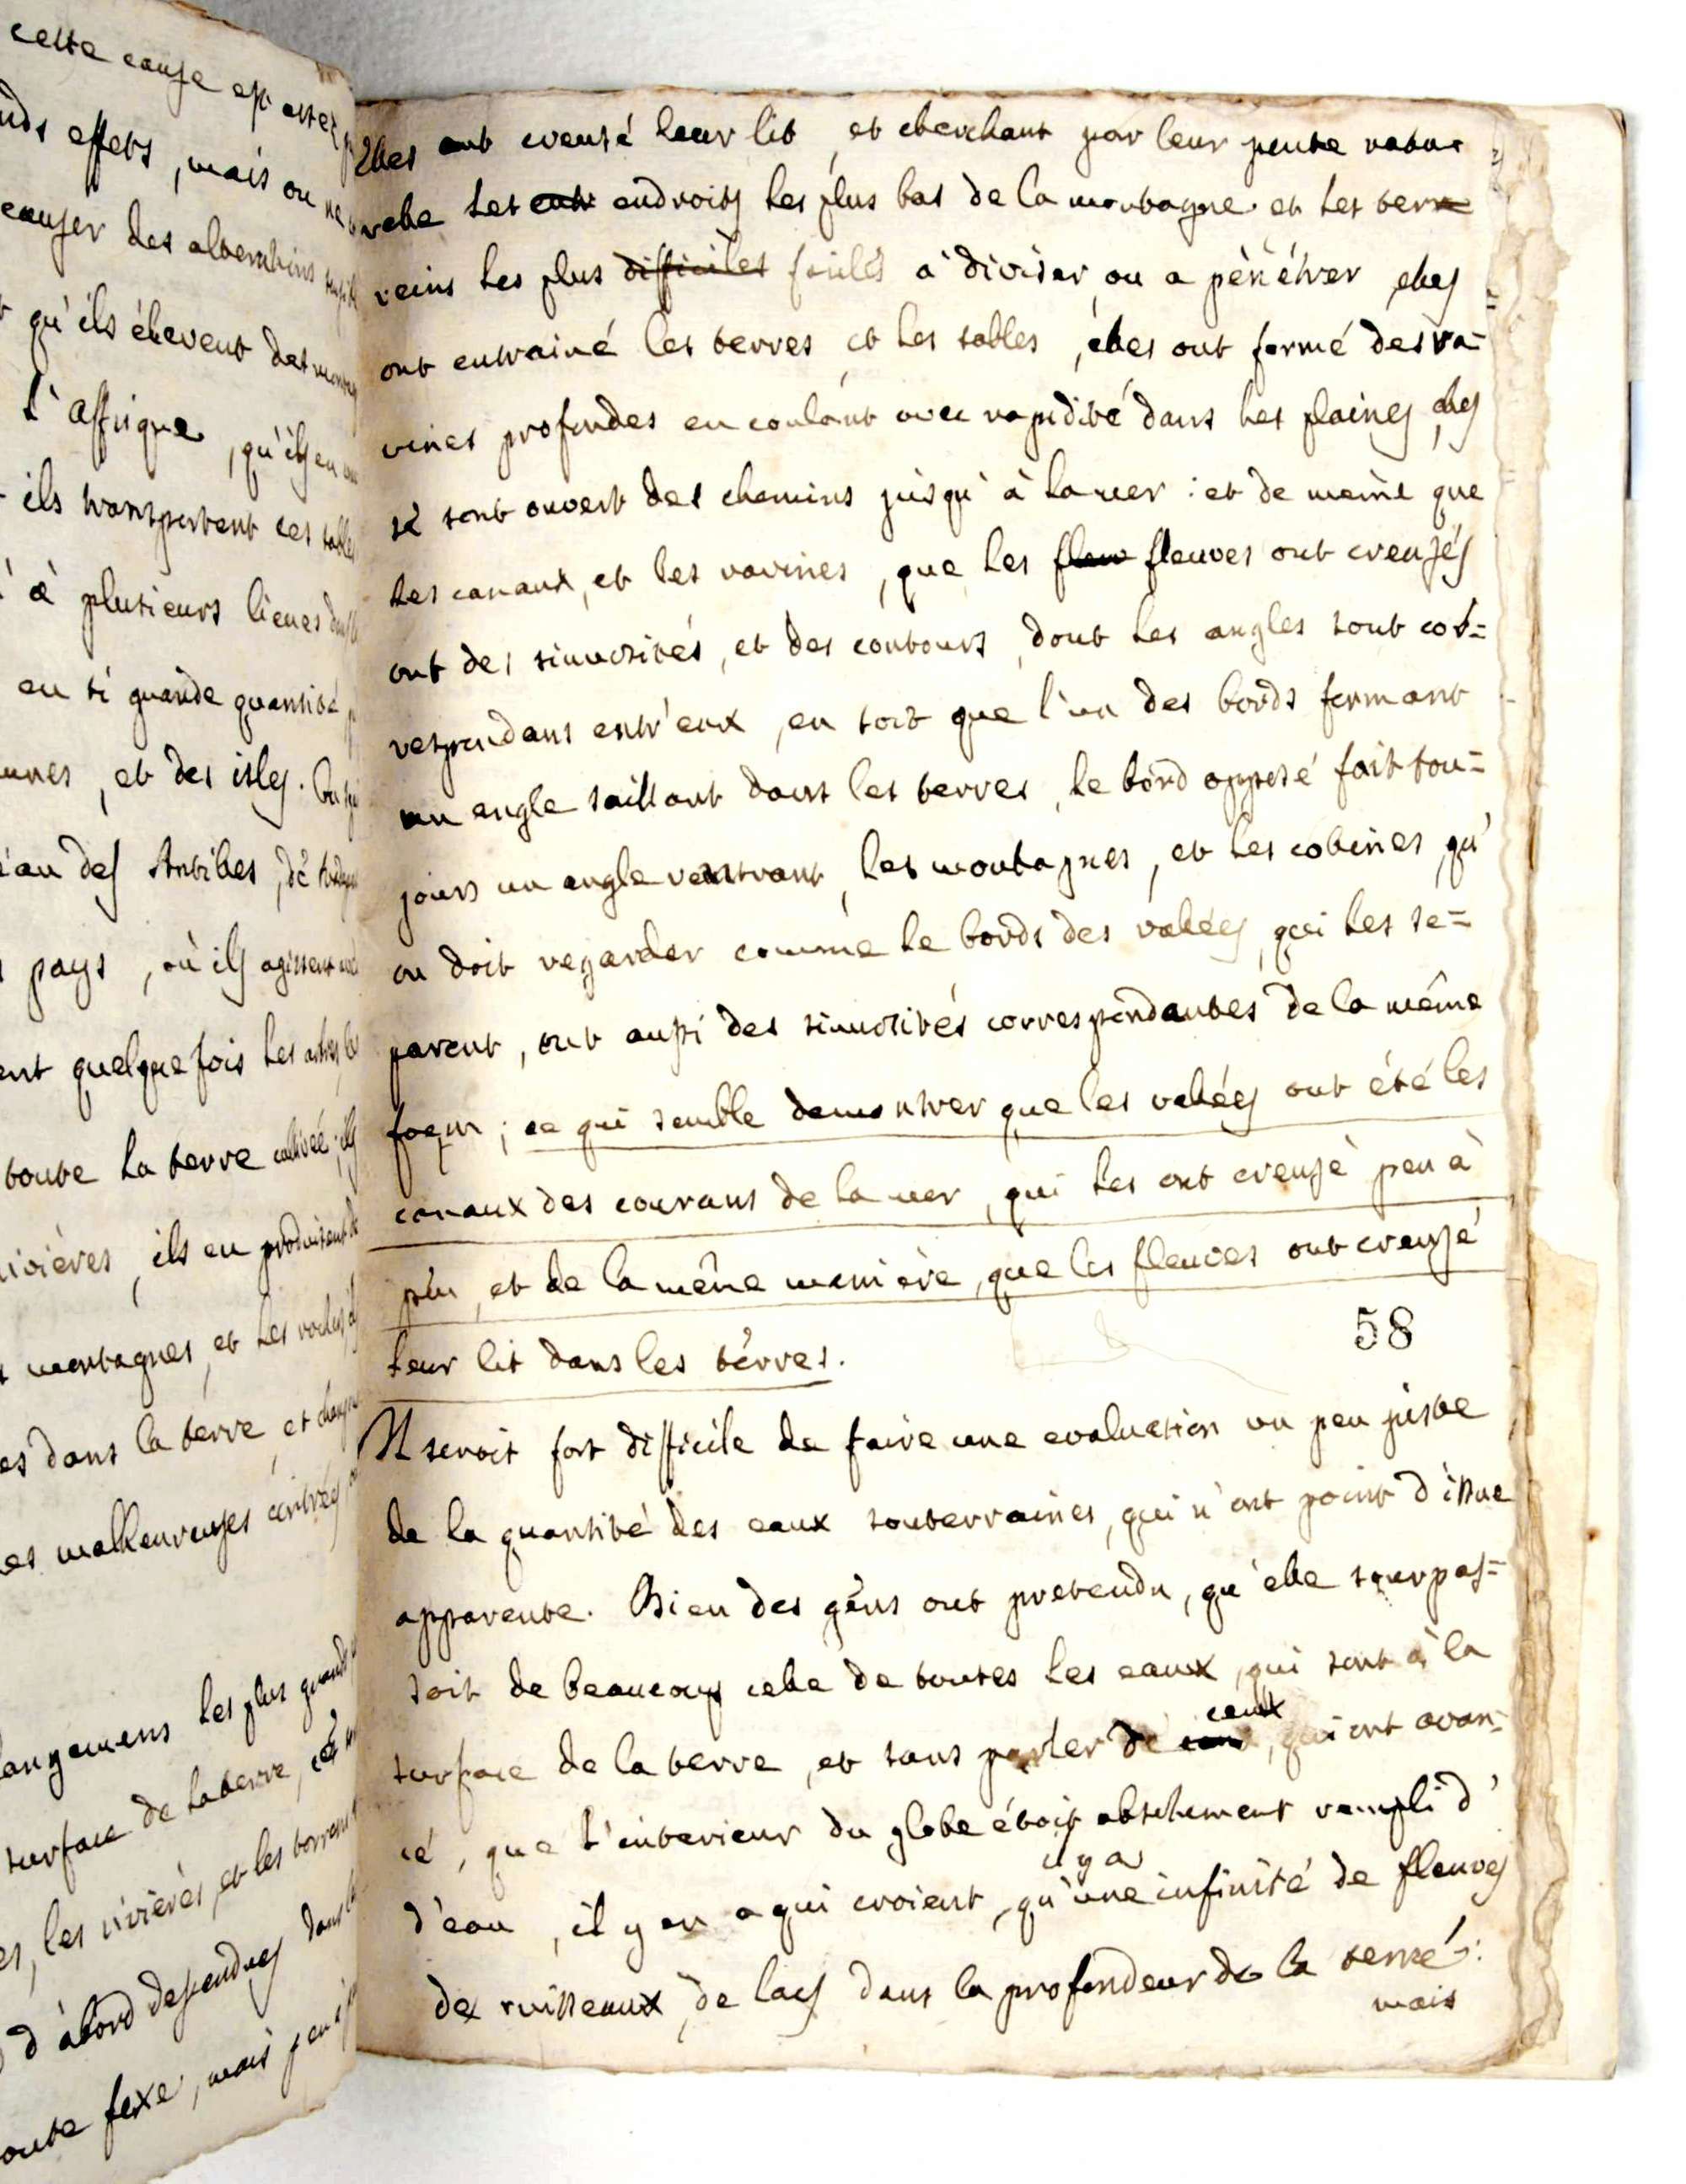 cette cause est assez
nds effets, mais on ne
causer des alterations
qu'ils élevent des
l'Affrique, qu'ils en
ils transportent ces sables
à plusieurs lieues dans
en si grande quantité
unes, et des isles.
eau des Antilles, de
pays, où ils agissent
ent quelque fois les arbres, les
toute la terre cultivée; ils
rivières, ils en produisent de
montagnes, et les
es dans la terre, et
es malheureuses contrées
angemens les plus grands
surface de la terre,
es, les rivières, et les torrens
d'abord descendues dans
oute fixe, mais
Elles ont creusé leur lit, et cherchant par leur pente natu=
relle les entr endroits les plus bas de la montagne et les terr
reins les plus difficiles faciles a diviser, ou a pénétrer, elles
ont entrainé les terres et les sables, elles ont formé des ra=
vines profondes en coulant avec rapidité dans les plaines, elles
se sont ouvert des chemins jusqu'à la mer: et de même que
les canaux, et les ravines, que les fleuv fleuves ont creusés
ont des sinuosités, et des contours, dont les angles sont cor=
respondans entr'eux, en sort que l'un des bords formant
un angle saillant dans les terres, le bord opposé fait tou=
jours un angle rentrant, les montagnes, et les colines, qu'
on doit regarder comme le bords des valées, qui les se=
parent, ont aussi des sinuosités correspondantes de la même
façon; ce qui semble demontrer que les valées ont été les
canaux des courans de la mer, qui les ont creusé peu à
peu, et de la même maniere, que les fleuves ont creusé
leur lit dans les terres.
58
Il seroit fort difficile de faire une evaluation un peu juste
de la quantité des eaux souterraines, qui n'ont point d'issue
apparente. Bien des gens ont pretendu, qu'elle surpas=
soit de beaucoup celle de toutes les eaux, qui sont à la
surface de la terre, et sans parler de ceux, qui ont avan=
cé, que l'interieur du globe étoit absolument rempli d'
d'eau, il y en a qui croient, qu'il y a une infinité de fleuves
de ruisseaux, de lacs dans la profondeur de la terre:
mais